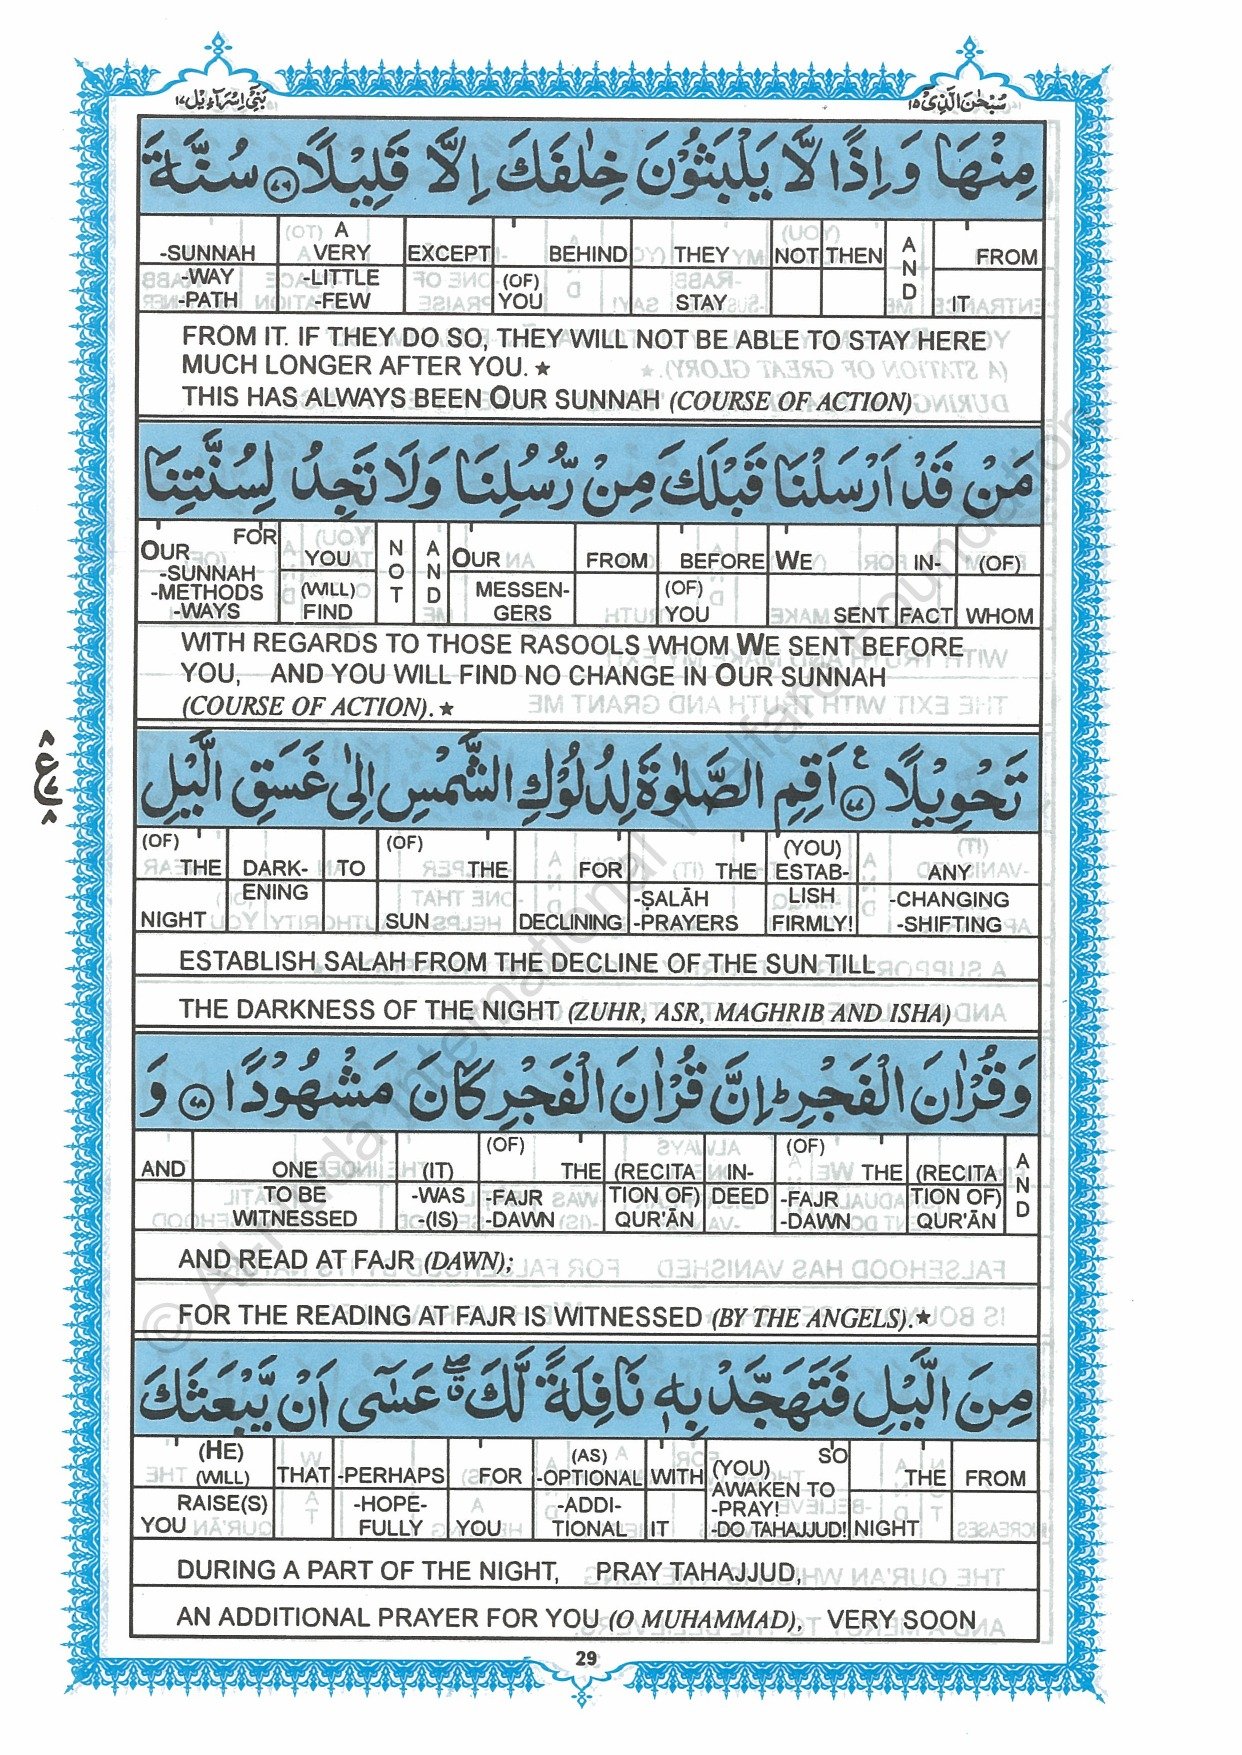 بَنِيْٓ اِسْرَآءِيْل ١٧
سُبْحٰنَ الَّذِيْٓ ١٥
مِنْهَا وَاِذًا لَّا يَلْبَثُوْنَ خِلٰفَكَ اِلَّا قَلِيْلًا ٧٦ سُنَّةَ
-SUNNAH A VERY EXCEPT BEHIND THEY NOT THEN AND FROM
-WAY -PATH -LITTLE -FEW (OF) YOU STAY IT
FROM IT. IF THEY DO SO, THEY WILL NOT BE ABLE TO STAY HERE
MUCH LONGER AFTER YOU. ★
THIS HAS ALWAYS BEEN OUR SUNNAH (COURSE OF ACTION)
مَنْ قَدْ اَرْسَلْنَا قَبْلَكَ مِنْ رُّسُلِنَا وَلَا تَجِدُ لِسُنَّتِنَا
OUR FOR YOU NOT AND OUR FROM BEFORE WE IN- (OF)
-SUNNAH -METHODS -WAYS (WILL) FIND MESSEN- GERS (OF) YOU SENT FACT WHOM
WITH REGARDS TO THOSE RASOOLS WHOM WE SENT BEFORE
YOU, AND YOU WILL FIND NO CHANGE IN OUR SUNNAH
(COURSE OF ACTION). ★
تَحْوِيْلًا ٧٧ ع اَقِمِ الصَّلٰوةَ لِدُلُوْكِ الشَّمْسِ اِلٰى غَسَقِ الَّيْلِ
(OF) THE DARK- TO (OF) THE FOR THE (YOU) ESTAB- ANY
NIGHT ENING SUN DECLINING -ṢALĀH -PRAYERS LISH FIRMLY! -CHANGING -SHIFTING
ESTABLISH SALAH FROM THE DECLINE OF THE SUN TILL
THE DARKNESS OF THE NIGHT (ZUHR, ASR, MAGHRIB AND ISHA)
وَقُرْاٰنَ الْفَجْرِ ط اِنَّ قُرْاٰنَ الْفَجْرِ كَانَ مَشْهُوْدًا ٧٨ وَ
AND ONE (IT) (OF) THE (RECITA IN- (OF) THE (RECITA AND
TO BE WITNESSED -WAS -(IS) -FAJR -DAWN TION OF) QUR'ĀN DEED -FAJR -DAWN TION OF) QUR'ĀN
AND READ AT FAJR (DAWN);
FOR THE READING AT FAJR IS WITNESSED (BY THE ANGELS). ★
مِنَ الَّيْلِ فَتَهَجَّدْ بِهٖ نَافِلَةً لَّكَ عَسٰٓى اَنْ يَّبْعَثَكَ
(HE) (WILL) THAT -PERHAPS FOR (AS) -OPTIONAL WITH (YOU) SO AWAKEN TO THE FROM
RAISE(S) YOU -HOPE- FULLY YOU -ADDI- TIONAL IT -PRAY! -DO TAHAJJUD! NIGHT
DURING A PART OF THE NIGHT, PRAY TAHAJJUD,
AN ADDITIONAL PRAYER FOR YOU (O MUHAMMAD), VERY SOON
29